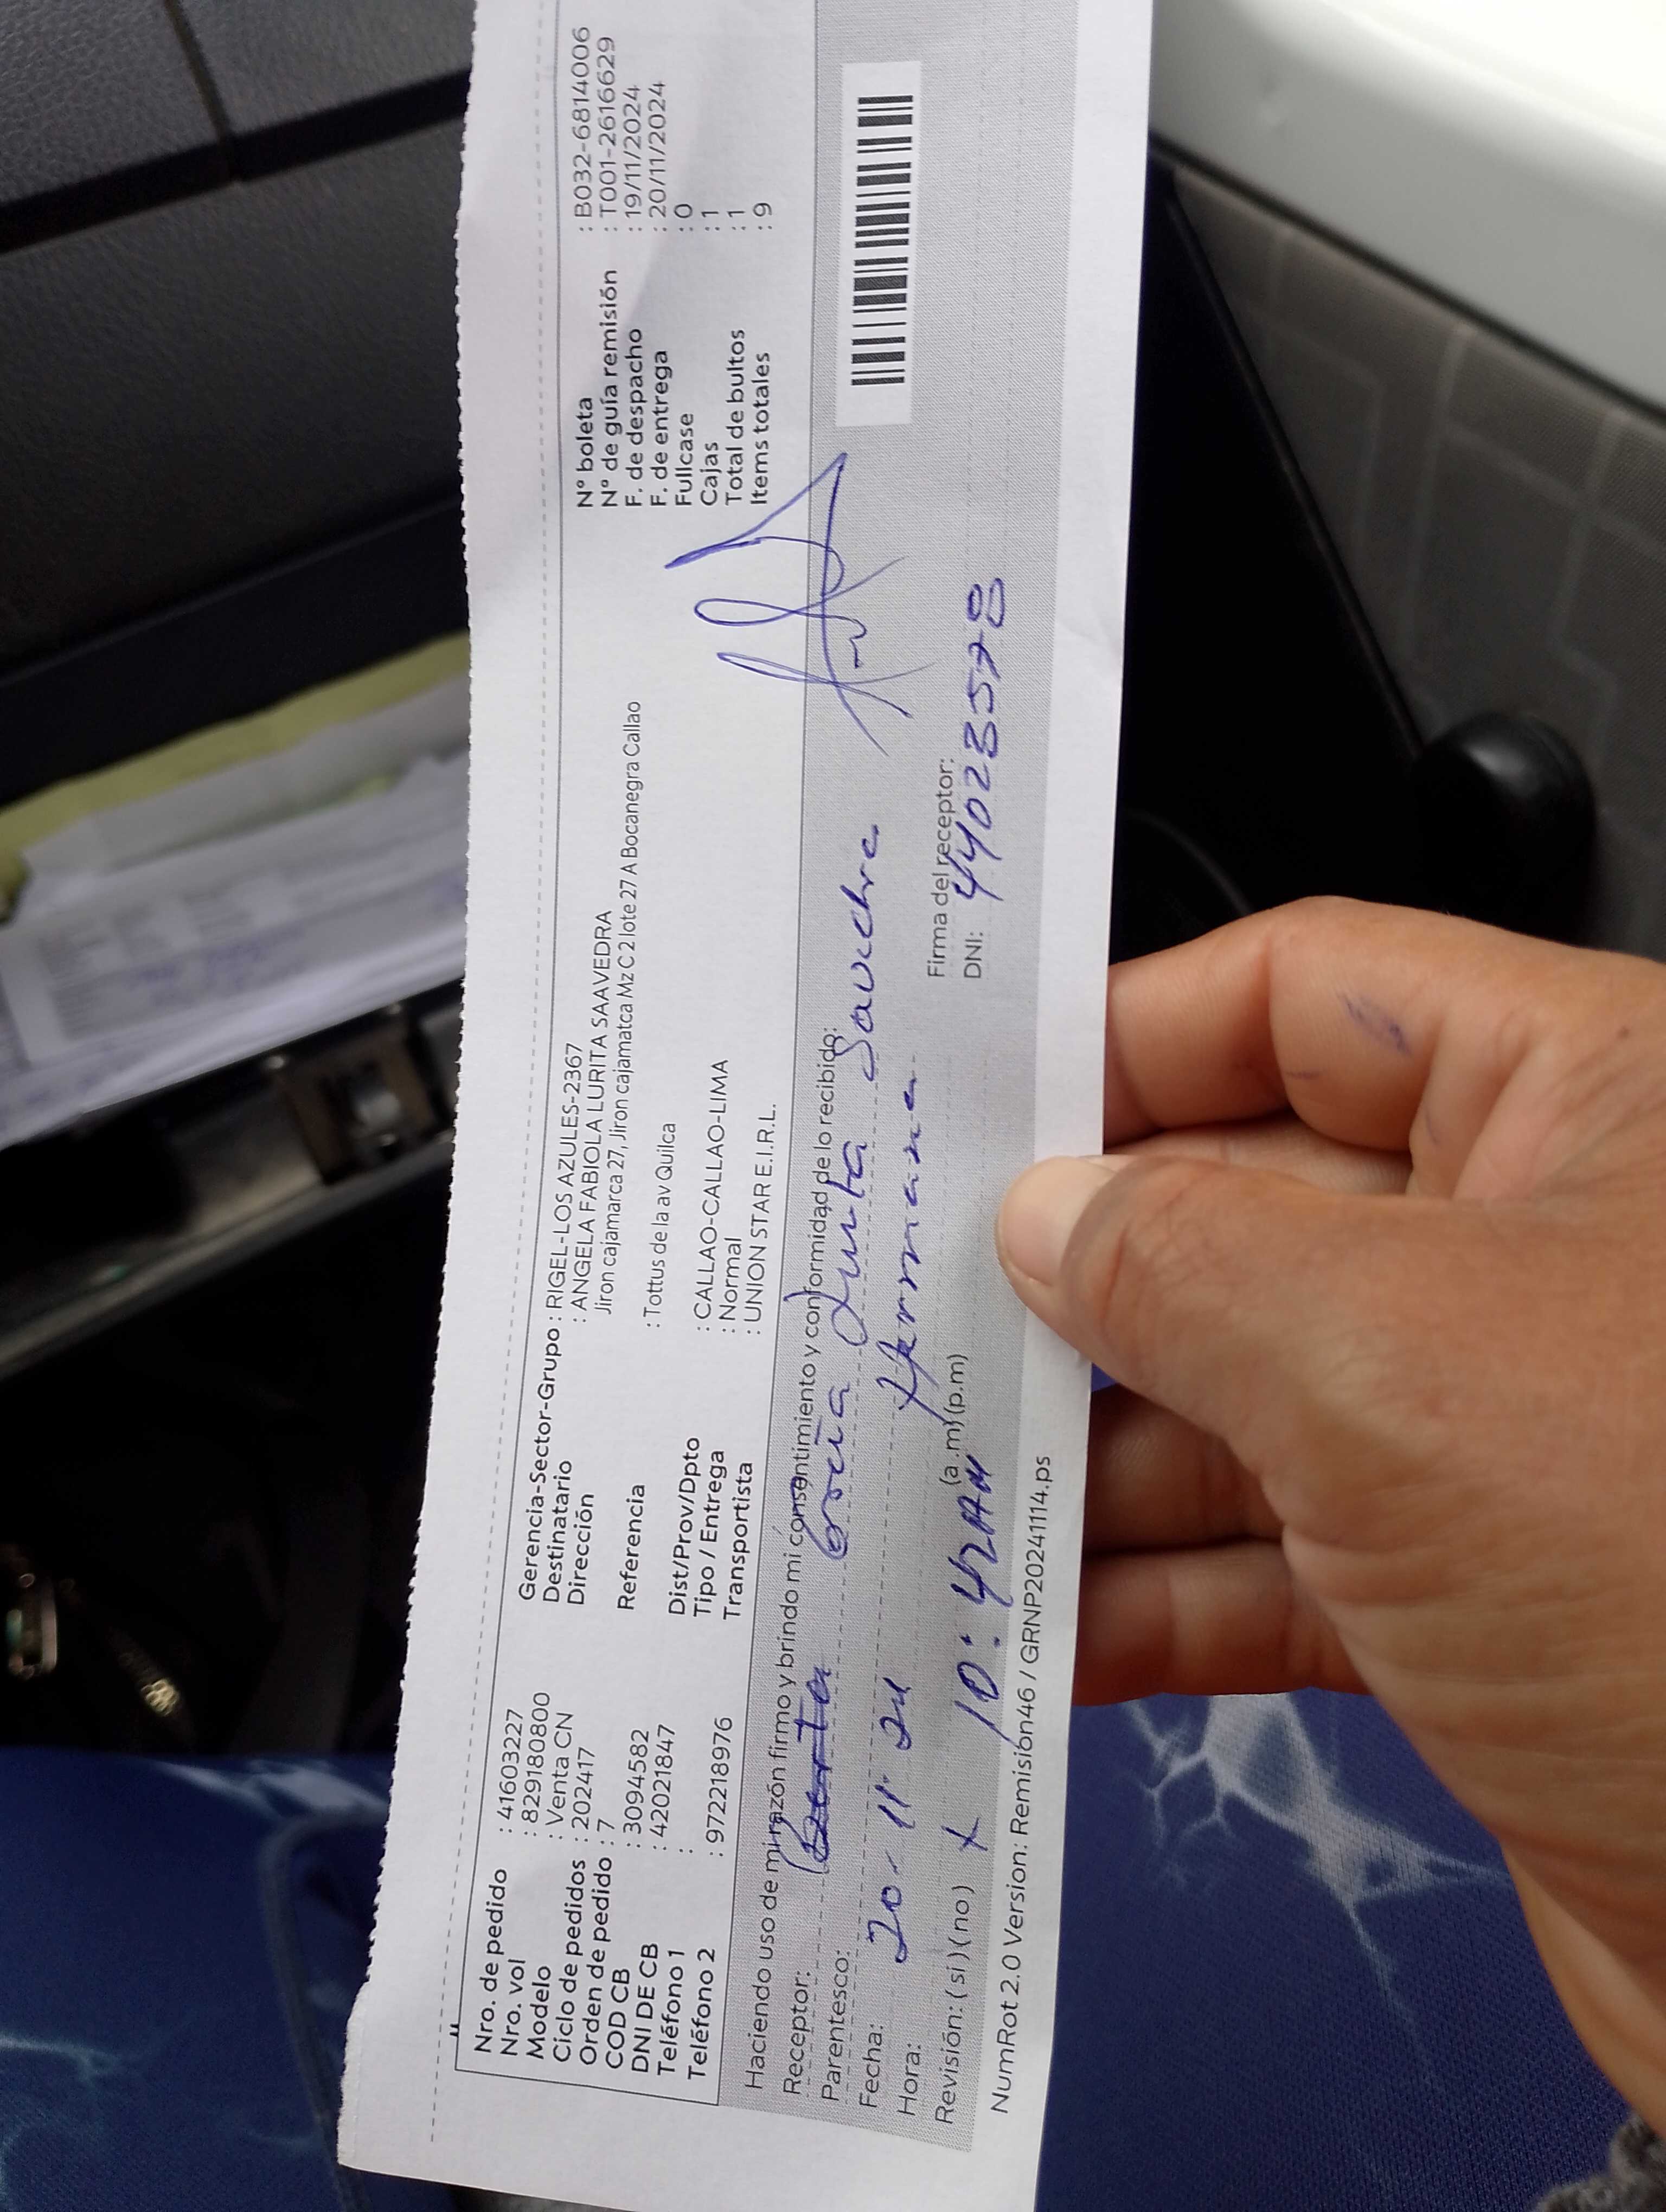 Nro. de pedido : 41603227
Nro. vol : 829180800
Modelo : Venta CN
Ciclo de pedidos : 202417
Orden de pedido : 7
COD CB : 3094582
DNI DE CB : 420221847
Teléfono 1 :
Teléfono 2 : 972218976
Gerencia-Sector-Grupo : RIGEL-LOS AZULES-2367
Destinatario : ANGELA FABIOLA LURITA SAAVEDRA
Dirección Jiron cajamarca 27, Jiron cajamatca Mz C 2 lote 27 A Bocanegra Callao
Referencia : Tottus de la av Quilca
Dist/Prov/Dpto : CALLAO-CALLAO-LIMA
Tipo / Entrega : Normal
Transportista : UNION STAR E.I.R.L.
N° boleta : B032-6814006
N° de guía remisión : T001-2616629
F. de despacho : 19/11/2024
F. de entrega : 20/11/2024
Fullcase : 0
Cajas : 1
Total de bultos : 1
Items totales : 9
Haciendo uso de mi razón firmo y brindo mi consentimiento y conformidad de lo recibido:
Receptor: Lurita
Parentesco: Hermana
Fecha: 20-11-24
Hora: 10:42AM (a.m) (p.m)
Revisión: (si) (no) x
Firma del receptor:
DNI: 44023578
NumRot 2.0 Version: Remisión46 / GRNP20241114.ps